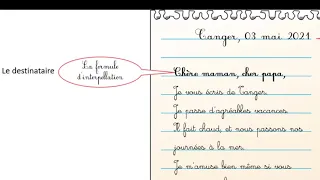 Tanger, 03 mai 2021
Le destinataire
La formule
d'interpellation
Chère maman, cher papa,
Je vous écris de Tanger.
Je passe d'agréables vacances.
Il fait chaud, et nous passons nos
journées à la mer.
Je m'amuse bien même si vous